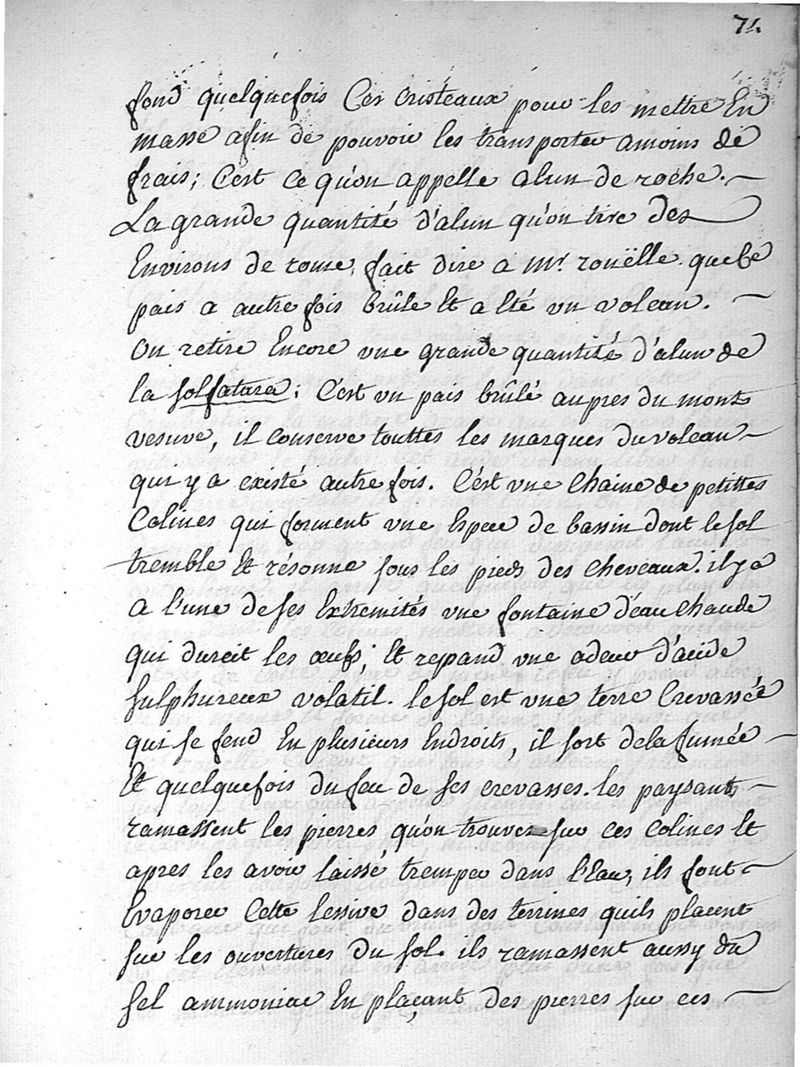 74
fond quelquefois Ces cristeaux pour les mettre En
masse afin de pouvoir les transporter amoins de
frais; C'est ce qu'on appelle alun de roche.
La grande quantité d'alun qu'on tire des
Environs de rome, fait dire a Mr. rouëlle que Ce
païs a autre fois brûlé Et a Eté vn volcan.
on retire Encore vne grande quantité d'alun de
la solfatara; C'est vn païs brûlé aupres du mont
vesuve, il conserve touttes les marques du volcan
qui y a existé autre fois. C'est vne Chaine de petittes
Colines qui forment vne Espece de bassin dont le sol
tremble Et résonne sous les pieds des Cheveaux. il y a
a l'une de ses Extremités vne fontaine d'eau Chaude
qui durcit les œufs; Et repand vne odeur d'acide
sulphureux volatil. le sol est vne terre Crevassée
qui se fend En plusieurs Endroits, il sort de la fumée
Et quelquefois du feu de ses crevasses. les paysants
ramassent les pierres qu'on trouve sur ces Colines Et
apres les avoir laissé tremper dans l'Eau, ils font
Evaporer Cette lessive dans des terrines quils placent
sur les ouvertures du sol. ils ramassent aussy du
sel ammoniac En plaçant des pierres sur ces